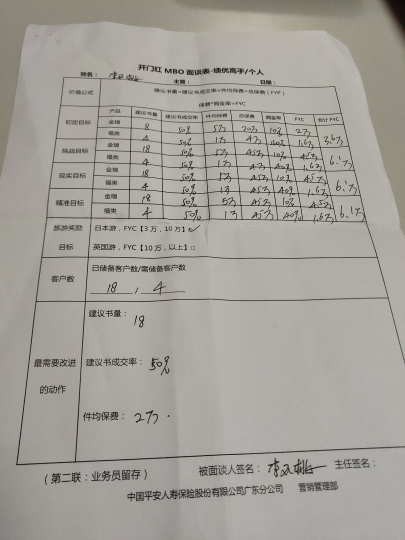 开门红 MBO 面谈表-绩优高手/个人
姓名： 主管： 日期：
价值公式 建议书量×建议书成交率×件均保费=总保费（FYP）
保费*佣金率=FYC
产品 建议书量 建议书成交率 件均保费 总保费 佣金率 FYC 合计 FYC
初定目标 金瑞 8 50% 5万 20万 10% 2万 3.6万
福类 4 50% 1万 4万 40% 1.6万
挑战目标 金瑞 18 50% 5万 45万 10% 4.5万 6.1万
福类 4 50% 1万 40% 1.6万
现实目标 金瑞 18 50% 5万 45万 10% 4.5万 6.1万
福类 4 50% 1万 40% 1.6万
精准目标 金瑞 18 50% 5万 45万 10% 4.5万 6.1万
福类 4 50% 1万 40% 1.6万
旅游奖励 日本游，FYC【3万，10万】☑
目标 英国游，FYC【10万，以上】□
客户数 已储备客户数/需储备客户数
18 , 4
建议书量： 18
最需要改进 建议书成交率： 50%
的动作
件均保费： 2万
（第二联：业务员留存） 被面谈人签名： 主任签名：
中国平安人寿保险股份有限公司广东分公司 营销管理部